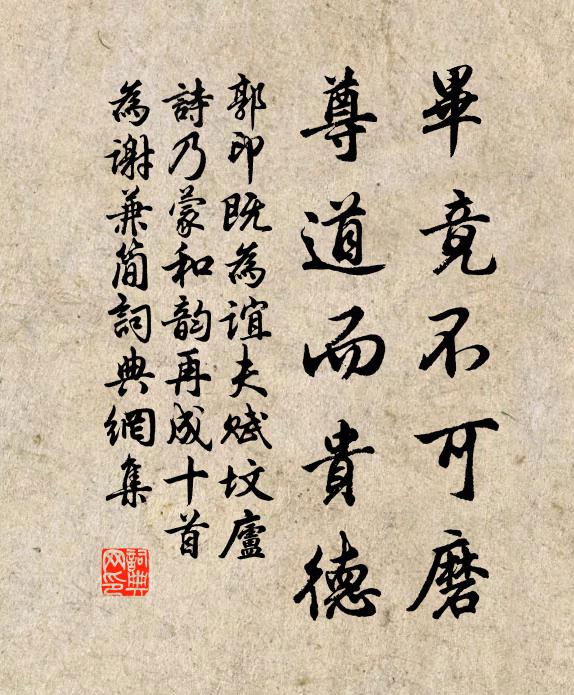 畢竟不可磨
尊道而貴德
郭印既為誼夫賦墳廬
詩乃蒙和韵再成十首
為謝兼簡詞典網集
詞典网印